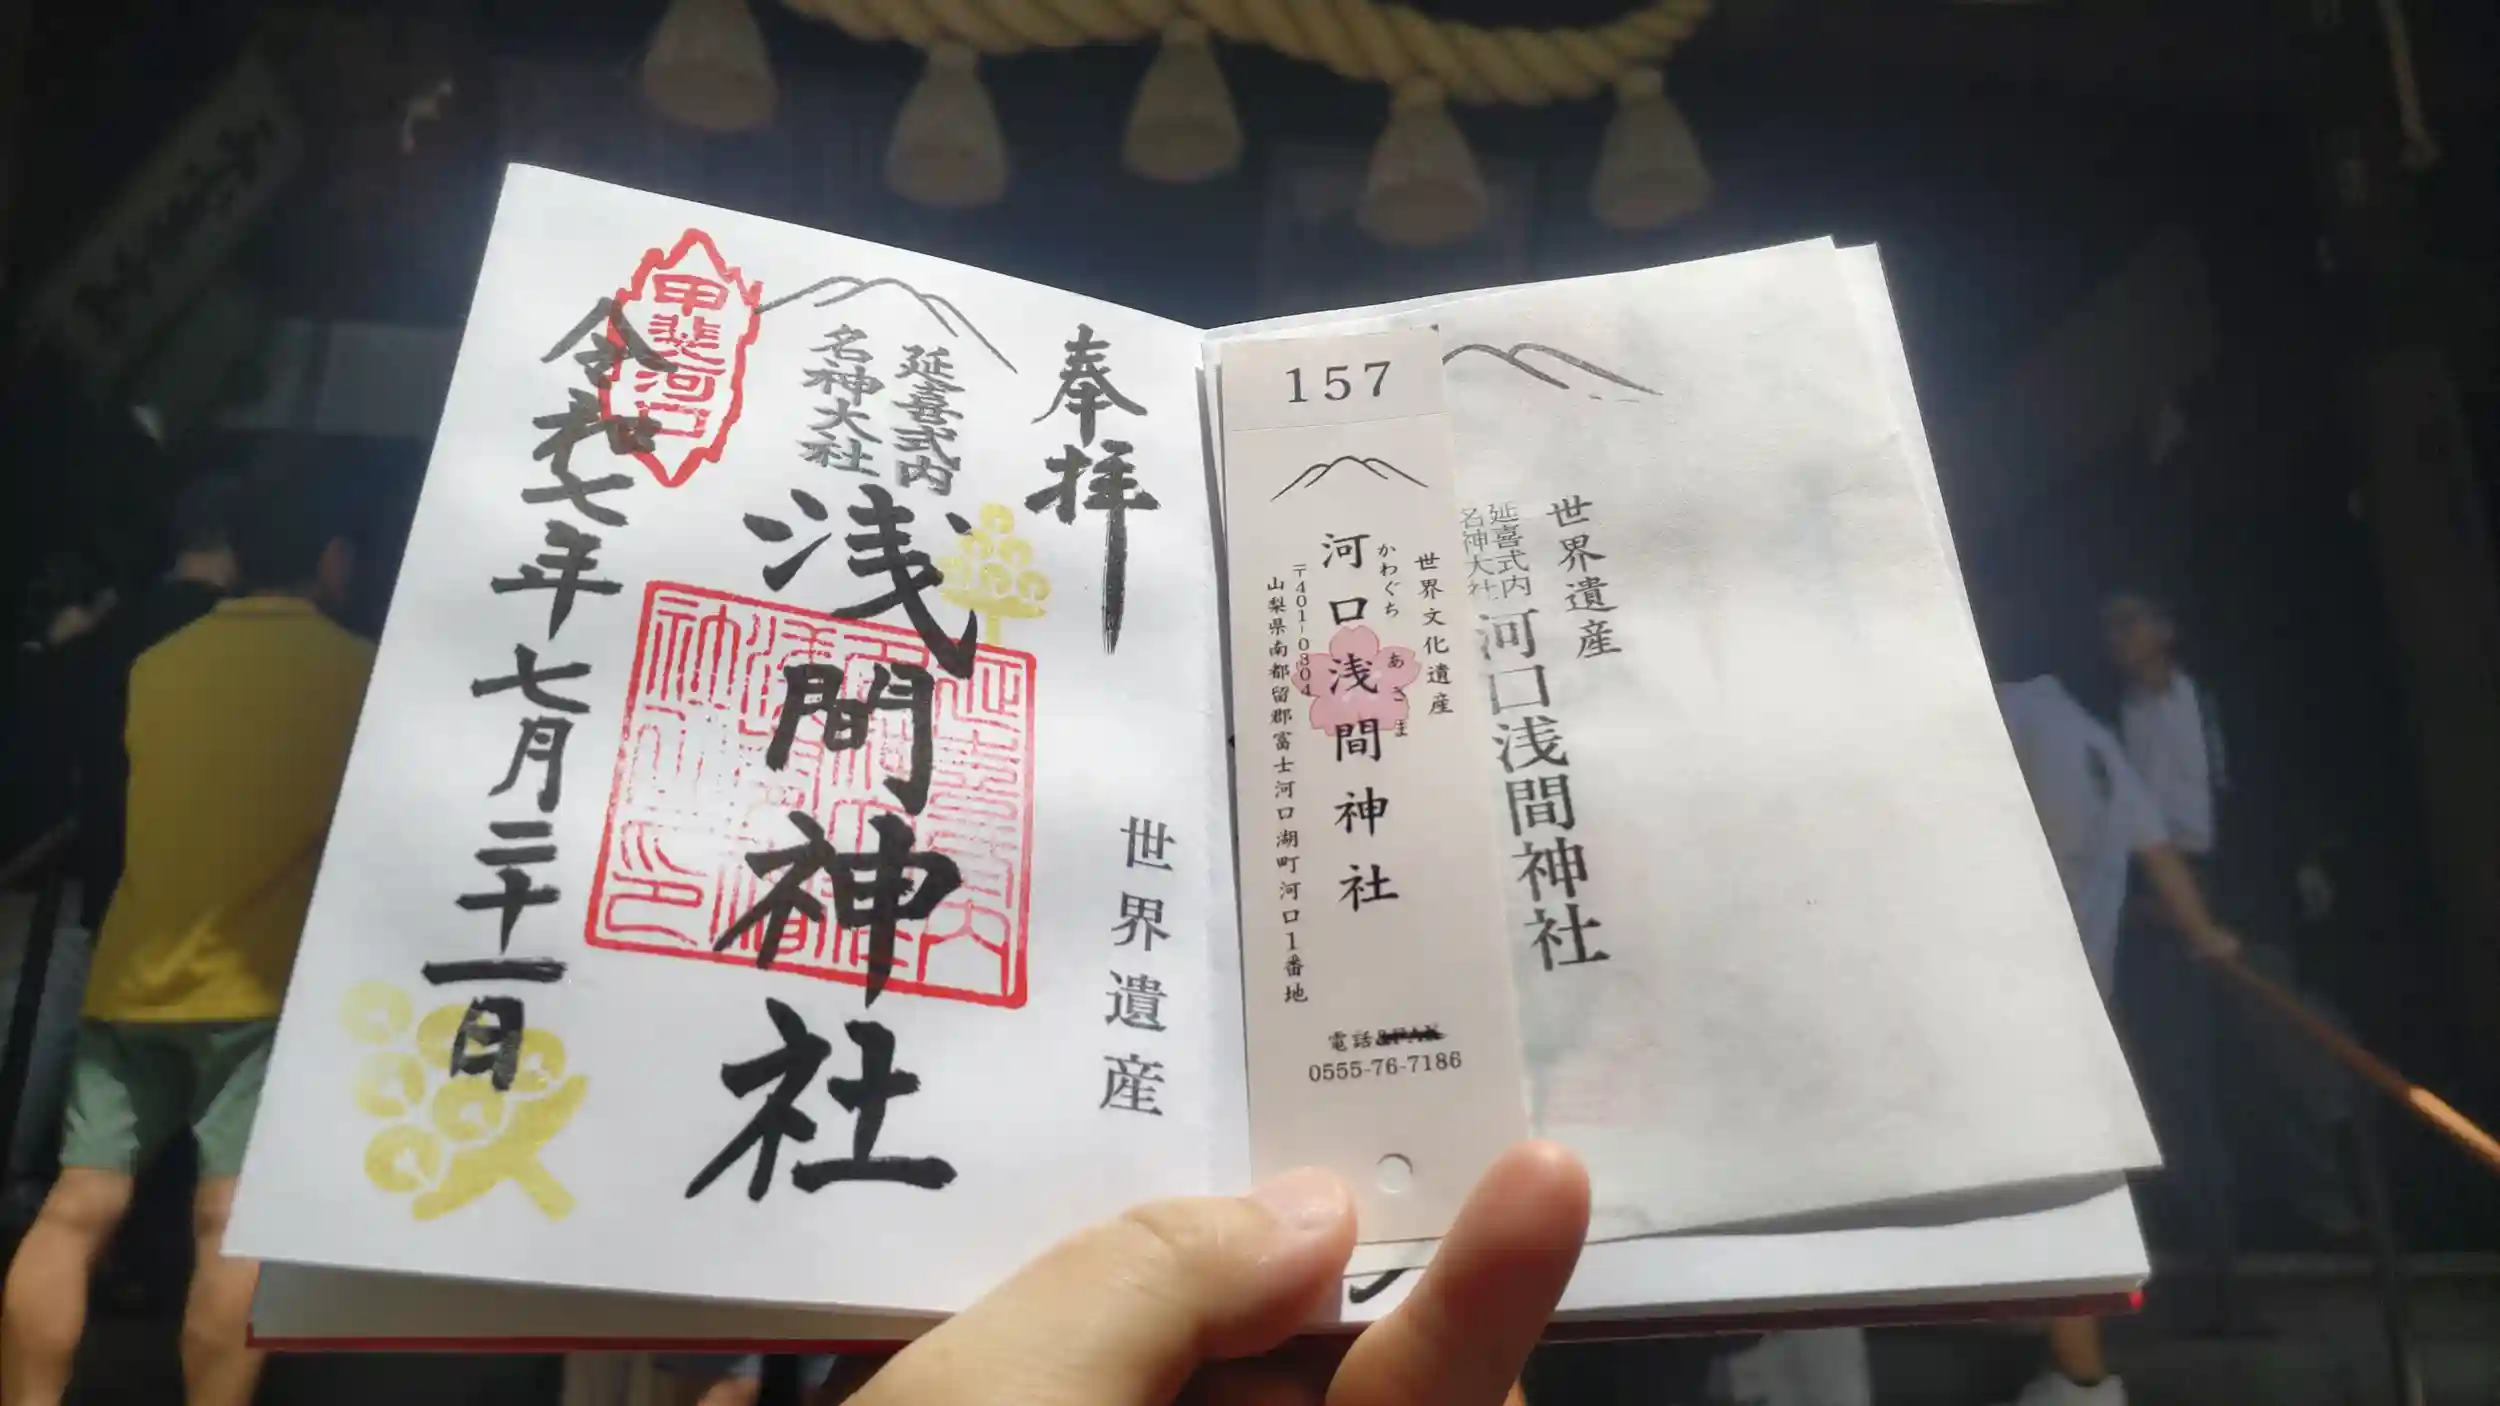 奉拝
世界遺産
延喜式内
名神大社
浅間神社
甲斐河口
令和七年七月二十一日
157
世界文化遺産
かわぐち あさま
河口浅間神社
〒401-0304
山梨県南都留郡富士河口湖町河口1番地
電話
0555-76-7186
世界遺産
延喜式内
名神大社
河口浅間神社